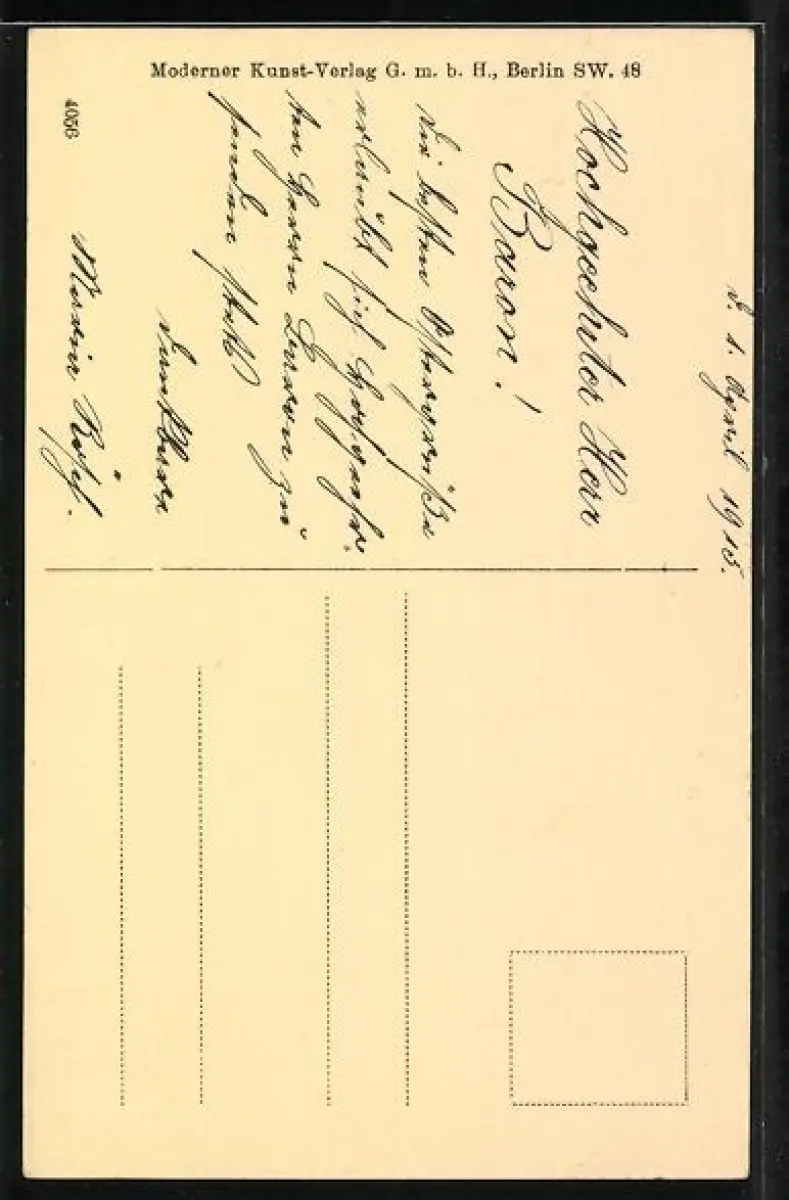 Moderner Kunst-Verlag G. m. b. H., Berlin SW. 48
4056
d. 1. April 1915.
Hochgeehrter Herr
Baron!
die besten Ostergrüße
erlaubt sich Hochgeehr-
ten Herrn Baron zu
senden stets
dankbare
Maria